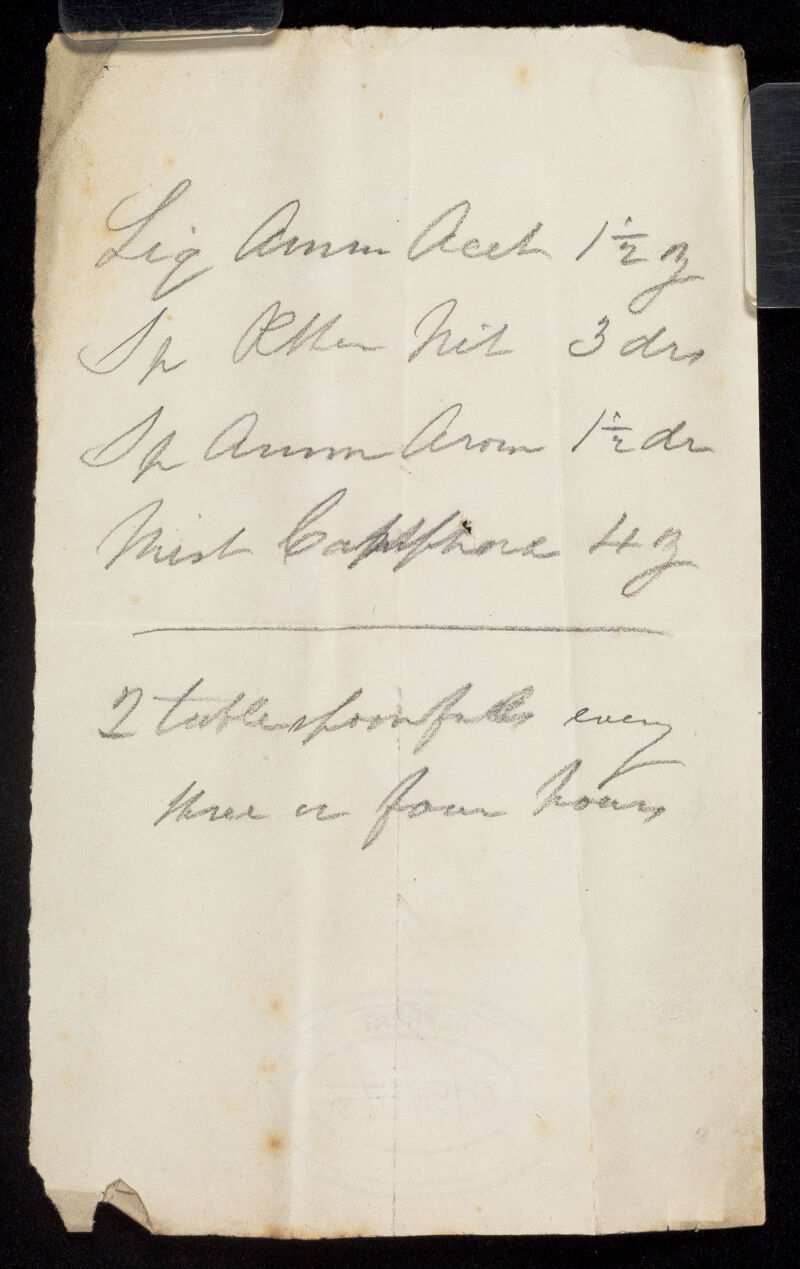 Liq Amm Acet 1½ ℥
Sp Æther Nit 3 drs
Sp Amm Arom 1½ dr
Mist Camphorae 4 ℥
2 tablespoonfuls every
three or four hours